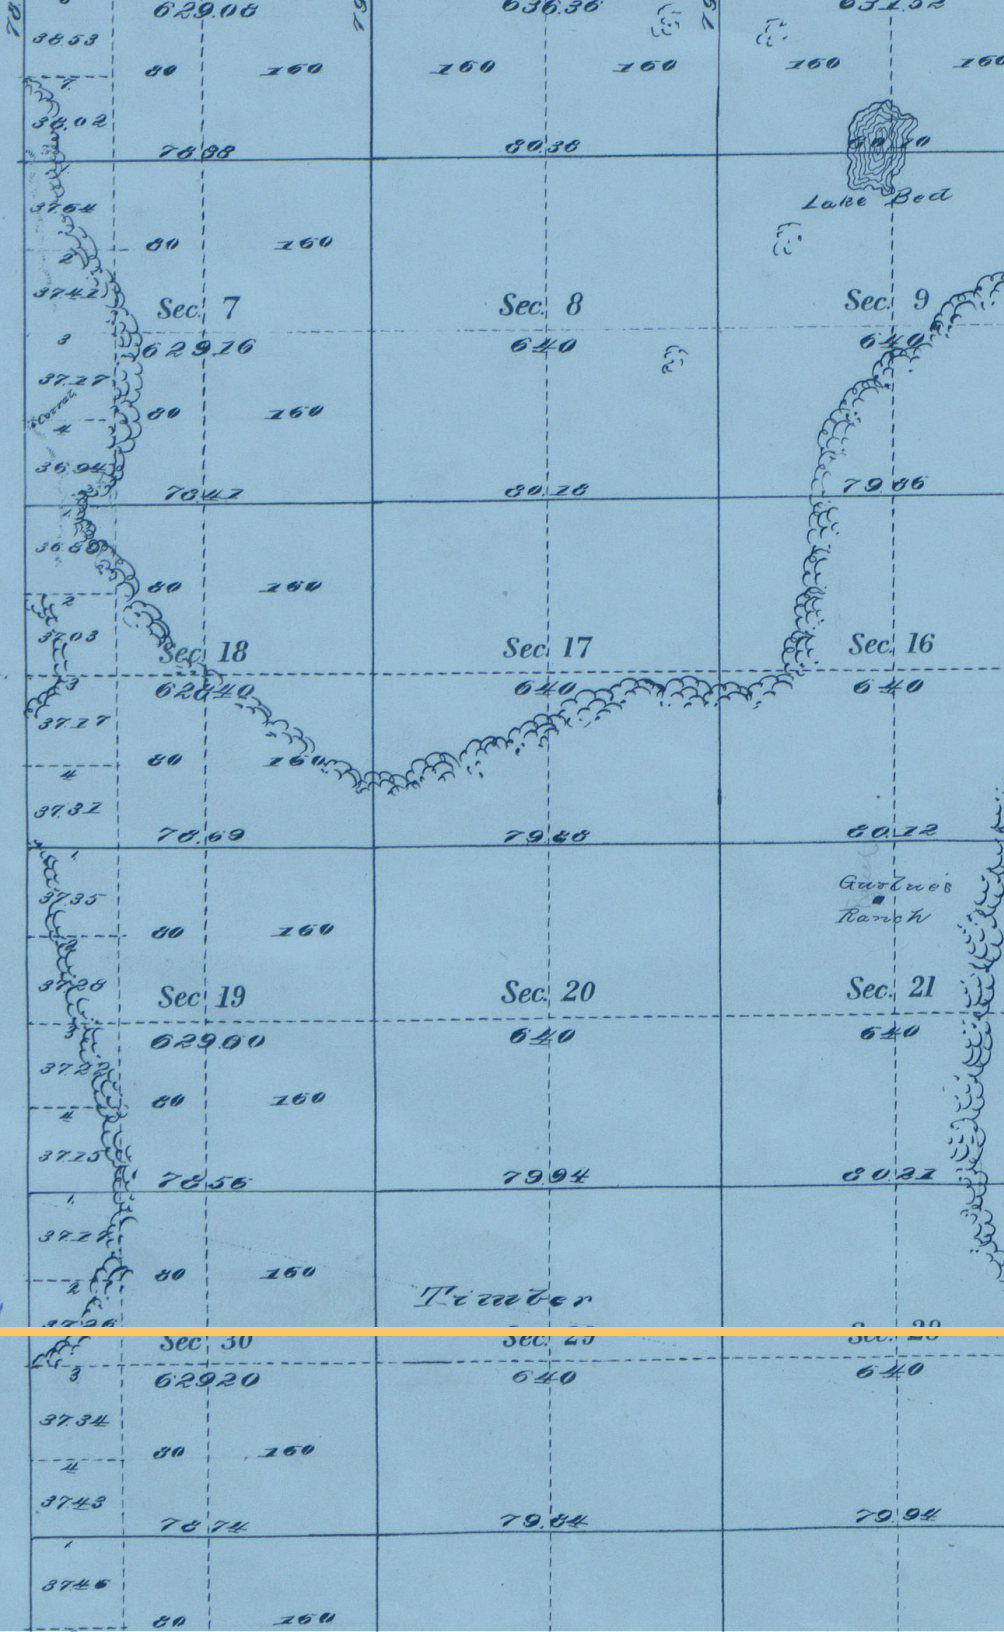 629.08 636.36 631.52
38.53
80 160 160 160 160 160
1
38.02
78.88 80.36
Lake Bed
37.64
80 160
2
37.41
Sec. 7 Sec. 8 Sec. 9
3
629.16 640 640
37.17
Corral
80 160
4
36.94
78.41 80.18 79.86
1
80 160
2
37.03
Sec. 18 Sec. 17 Sec. 16
3
628.40 640 640
37.17
80 160
4
37.31
78.69 79.88 80.12
1
37.35
Ranch
80 160
2
37.28
Sec. 19 Sec. 20 Sec. 21
3
629.00 640 640
37.22
80 160
4
37.15
78.56 79.94 80.21
1
37.17
80 160
2
Timber
37.26
Sec. 30 Sec. 29 Sec. 28
3
629.20 640 640
37.34
80 160
4
37.43
78.74 79.84 79.94
1
37.46
80 160